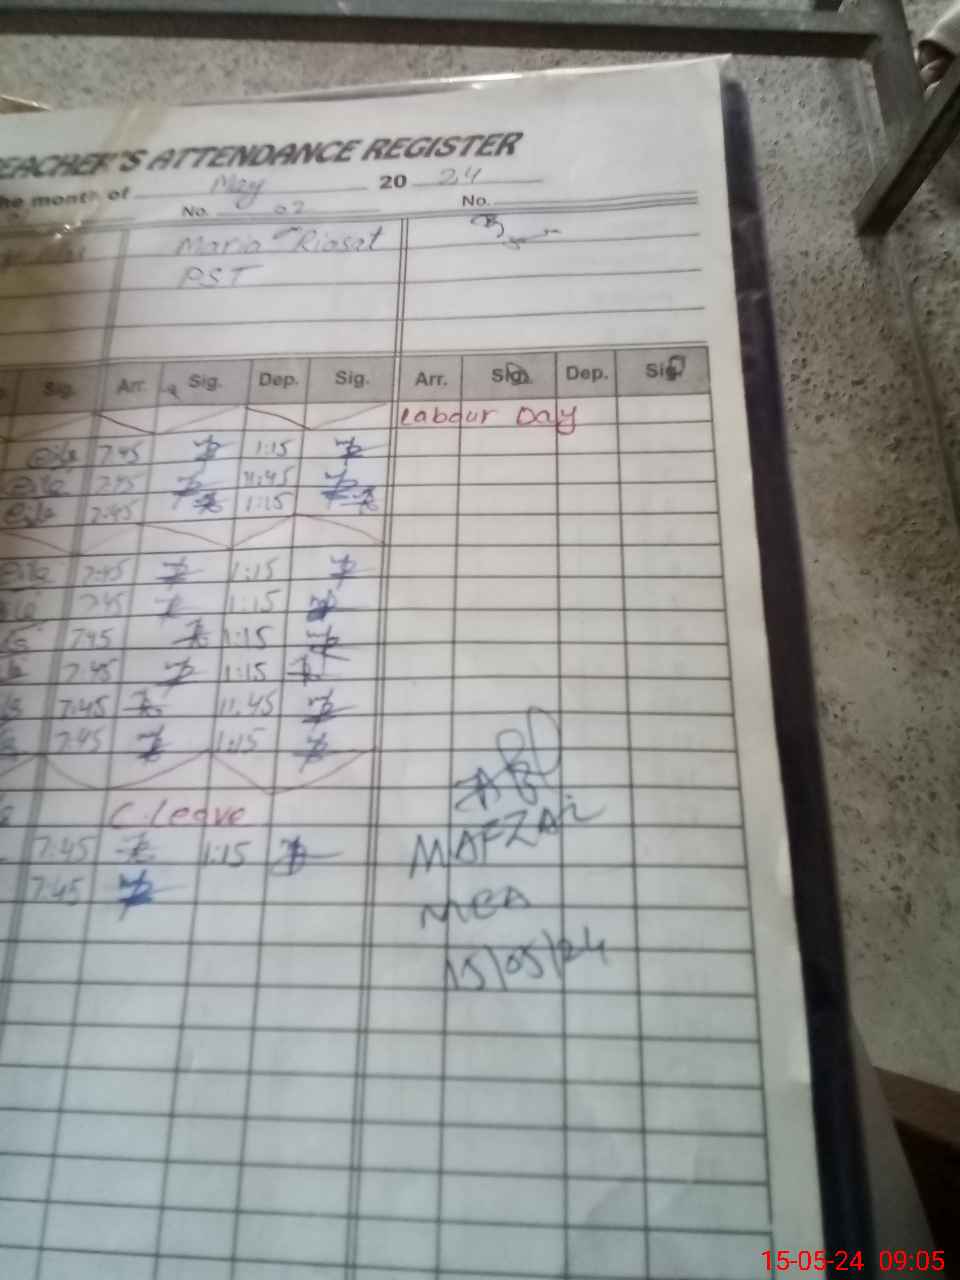 TEACHER'S ATTENDANCE REGISTER
the month of May 20 24
No. 02 No.
Maria Riasat
PST
Sig. Arr. Sig. Dep. Sig. Arr. Sig. Dep. Sig.
Labour Day
7:45 1:15
7:45 11:45
7:45 1:15
7:45 1:15
7:45 1:15
7:45 1:15
7:45 1:15
7:45 11:45
7:45 1:15
C.leave
7:45 1:15
7:45
MAFZAL
MEA
15/05/24
15-05-24 09:05